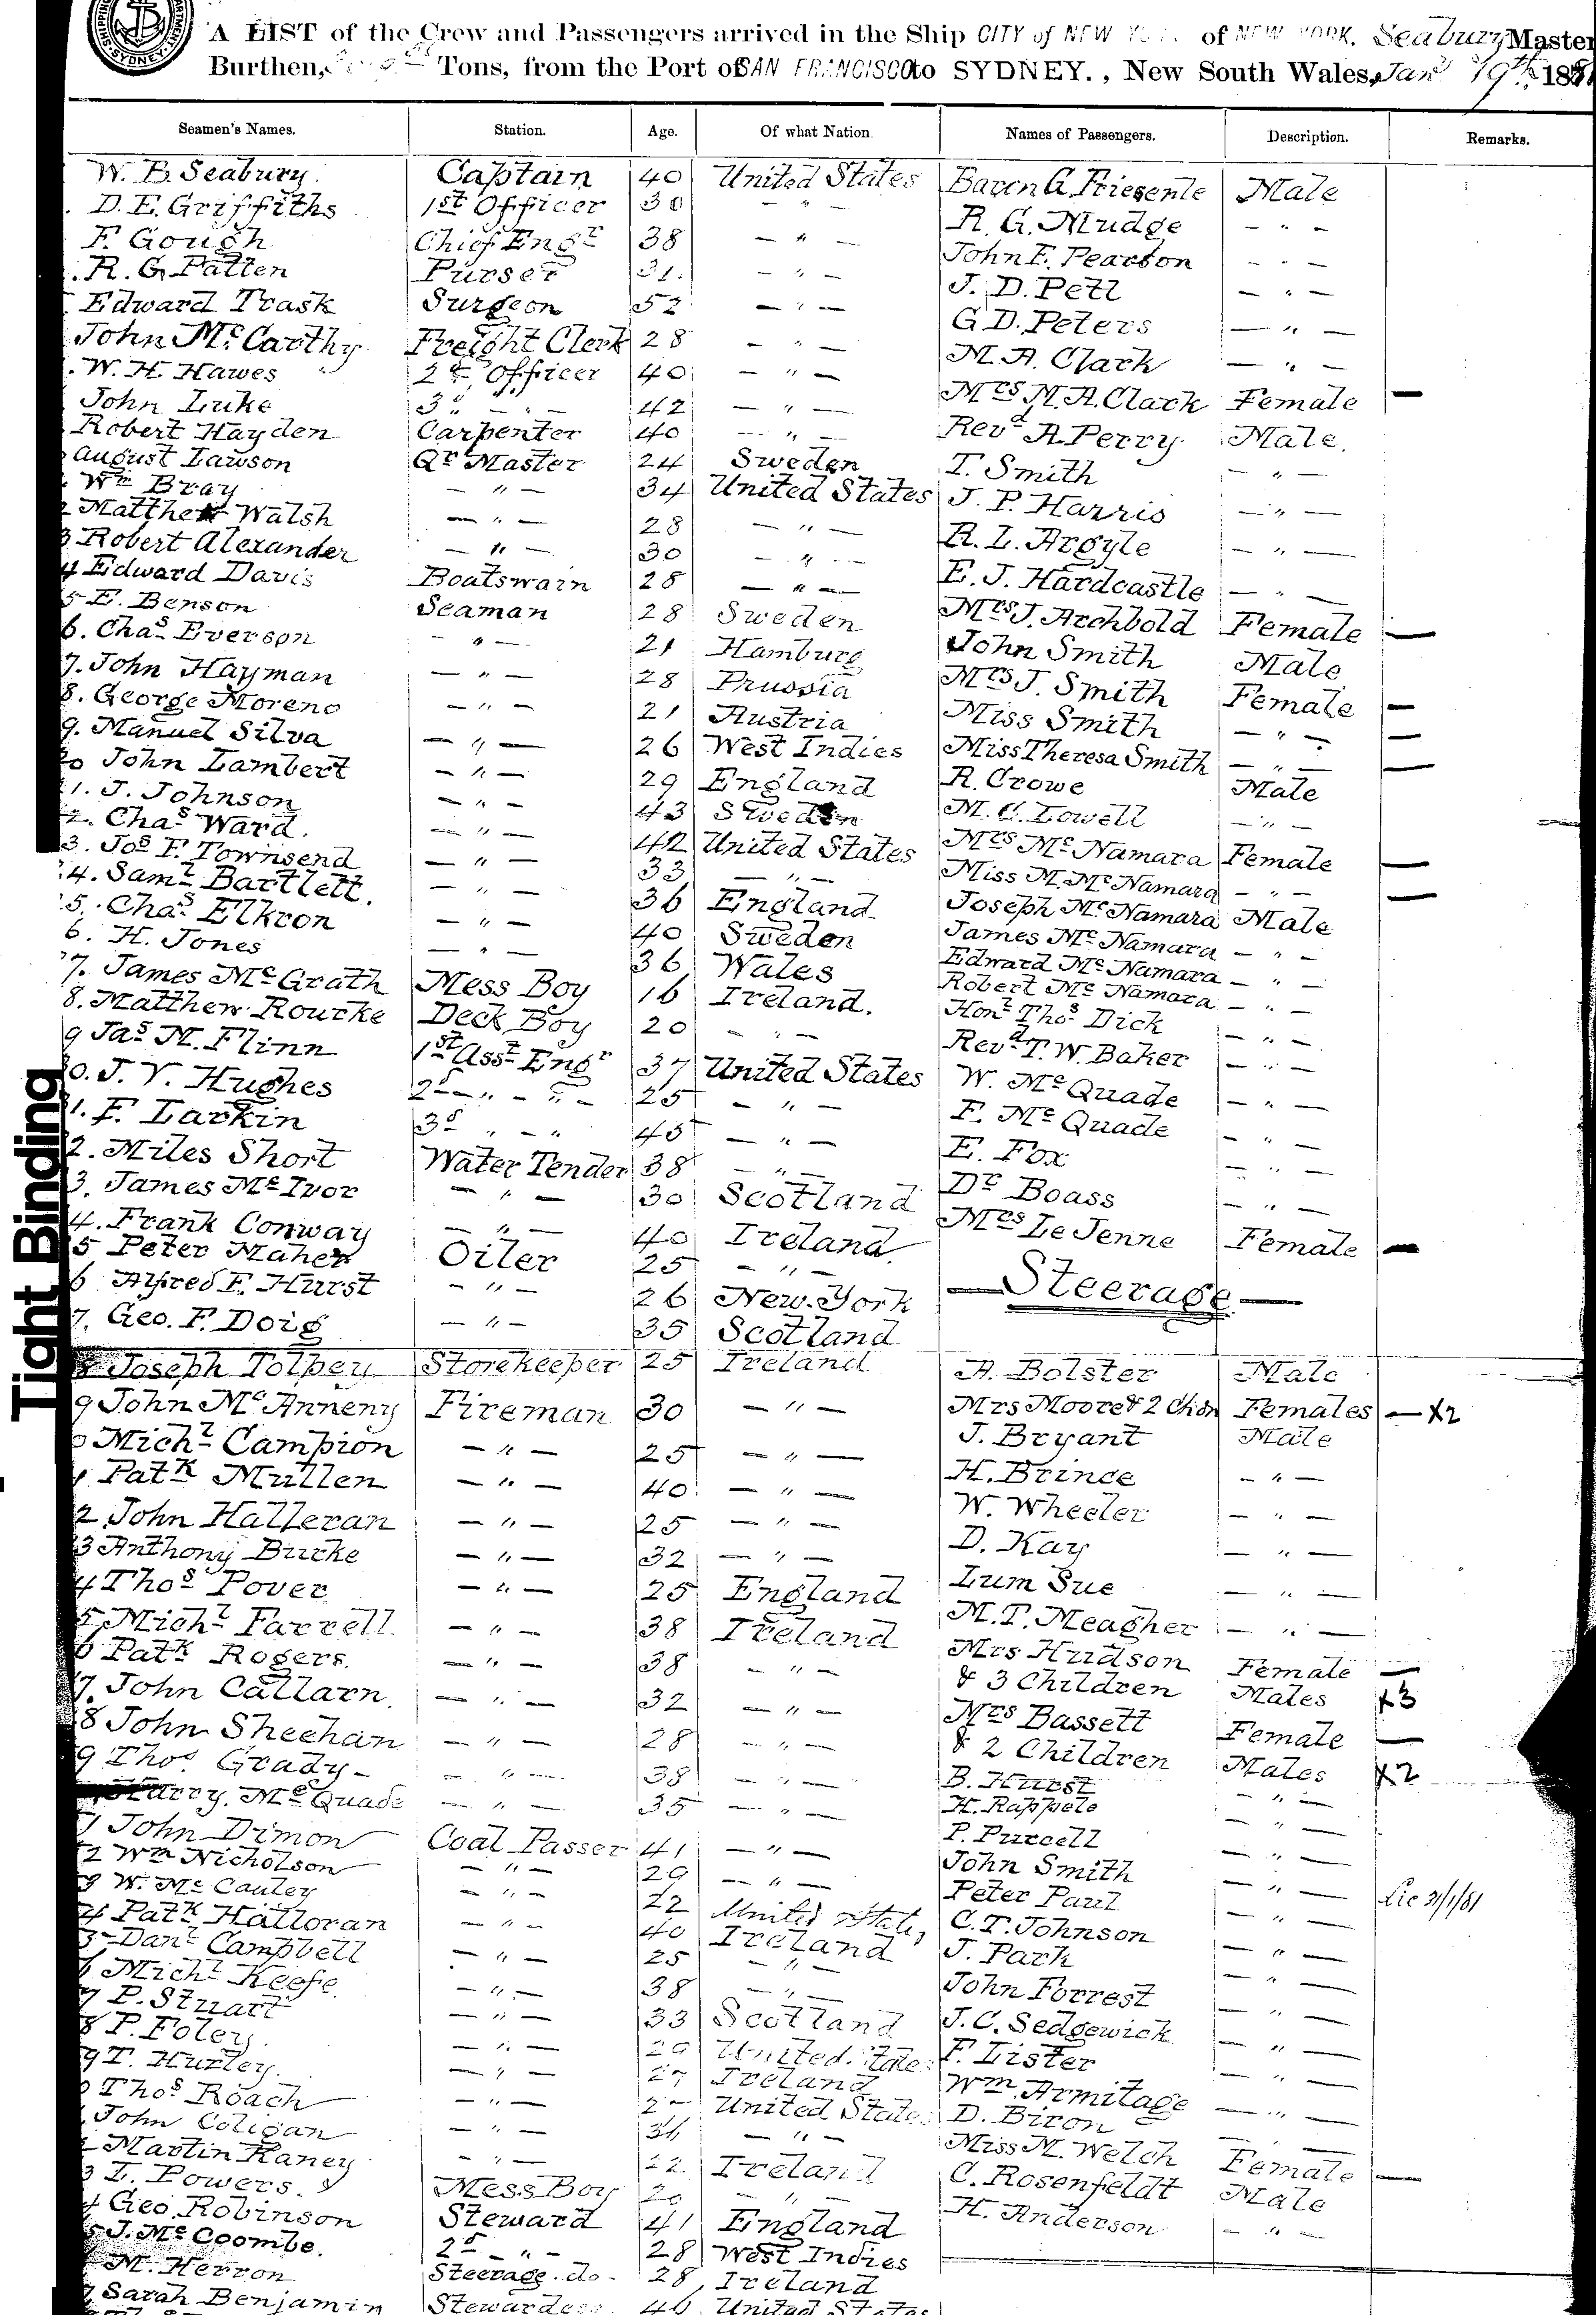 A LIST of the Crew and Passengers arrived in the Ship CITY of NEW YORK of NEW YORK, Seabury Master
Burthen, Tons, from the Port of SAN FRANCISCO to SYDNEY., New South Wales, Jan 19th 1881
Seamen's Names. Station. Age. Of what Nation Names of Passengers. Description. Remarks.
W. B. Seabury. Captain 40 United States Baron A. Friesente Male
D. E. Griffiths 1st Officer 30 — " — R. G. Mudge — " —
F. Gough Chief Engr 38 — " — John F. Pearson — " —
R. G. Patten Purser 31. — " — J. D. Pett — " —
Edward Trask Surgeon 52 — " — G. D. Peters — " —
John McCarthy Freight Clerk 28 — " — M. A. Clark — " —
W. H. Hawes 2d Officer 40 — " — Mrs M. A. Clark Female —
John Luke 3d — " — 42 — " — Revd A. Perry Male.
Robert Hayden Carpenter 40 — " — T. Smith — " —
August Lawson Qr Master 24 Sweden J. P. Harris — " —
Wm Bray — " — 34 United States R. L. Argyle — " —
2 Matthew Walsh — " — 28 — " — E. J. Hardcastle — " —
3 Robert Alexander — " — 30 — " — Mrs J. Archbold Female —
4 Edward Davis Boatswain 28 — " — John Smith Male
5 E. Benson Seaman 28 Sweden Mrs J. Smith Female —
6. Chas Everson — " — 21 Hamburg Miss Smith — " — —
7. John Hayman — " — 28 Prussia Miss Theresa Smith — " — —
8. George Moreno — " — 21 Austria R. Crowe Male
9. Manuel Silva — " — 26 West Indies M. C. Lowell — " —
20 John Lambert — " — 29 England Mrs McNamara Female —
1. J. Johnson — " — 43 Sweden Miss M. McNamara — " — —
2. Chas Ward. — " — 42 United States Joseph McNamara Male
3. Jos F. Townsend — " — 33 — " — James McNamara — " —
4. Saml Bartlett. — " — 36 England Edward McNamara — " —
5. Chas Elkron — " — 40 Sweden Robert McNamara — " —
6. H. Jones — " — 36 Wales Honl Thos Dick — " —
7. James McGrath Mess Boy 16 Ireland. Revd T. W. Baker — " —
8. Matthew Rourke Deck Boy 20 — " — W. McQuade — " —
9 Jas M. Flinn 1st Asst Engr 37 United States F. McQuade — " —
0. J. V. Hughes 2d — " — " — 25 — " — E. Fox — " —
1. F. Larkin 3d " — " 45 — " — Dr Boass — " —
2. Miles Short Water Tender 38 — " — Mrs Le Jenne Female —
3. James McIvor — " — 30 Scotland
4. Frank Conway — " — 40 Ireland
5 Peter Maher Oiler 25 — " —
6 Alfred F. Hurst — " — 26 New York — Steerage —
7. Geo. F. Doig — " — 35 Scotland
8 Joseph Tolpey Storekeeper 25 Ireland A. Bolster Male
9 John McAnneny Fireman 30 — " — Mrs Moore & 2 Chdn Females — X2
0 Michl Campion — " — 25 — " — J. Bryant Male
1 Patk Mullen — " — 40. — " — H. Brince — " —
2 John Halleran — " — 25 — " — W. Wheeler — " —
3 Anthony Burke — " — 32 — " — D. Kay — " —
4 Thos Pover — " — 25 England Lum Sue — " —
5 Michl Farrell — " — 38 Ireland M. T. Meagher — " —
6 Patk Rogers. — " — 38 — " — Mrs Hudson Female —
7. John Callarn — " — 32 — " — & 3 Children Males X3
8 John Sheehan — " — 28 — " — Mrs Bassett Female —
9 Thos. Grady — " — 38 — " — & 2 Children Males X2
Harry McQuade — " — 35 — " — B. Hurst — " —
1 John Dimon Coal Passer 41 — " — H. Rappele — " —
2 Wm Nicholson — " — 29 — " — P. Purcell — " —
3 W. McCauley — " — 22 United States John Smith — " —
4 Patk Halloran — " — 40 Ireland Peter Paul — " — Lic 21/1/81
5 Danl Campbell — " — 25 — " — C. T. Johnson — " —
6 Michl Keefe — " — 38 — " — J. Park — " —
7 P. Stuart — " — 33 Scotland John Forrest — " —
8 P. Foley — " — 29 United States J. C. Sedgewick — " —
9 T. Hurley. — " — 27 Ireland F. Lister — " —
0 Thos Roach — " — United States Wm Armitage — " —
John Coligan — " — — " — D. Biron — " —
2 Martin Raney — " — 22 Ireland Miss M. Welch Female —
3 L. Powers. Mess Boy — " — C. Rosenfeldt Male
4 Geo Robinson Steward 41 England H. Anderson — " —
5 J. McCoombe. 2d — " — 28 West Indies
M. Herron Steerage. do 28 Ireland
7 Sarah Benjamin Stewardess 46 United States
Tight Binding